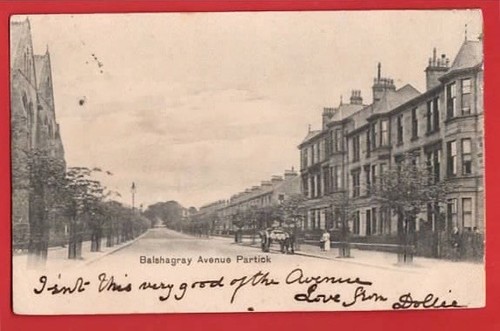 Balshagray Avenue Partick
Isn't this very good of the Avenue
Love from Dollie